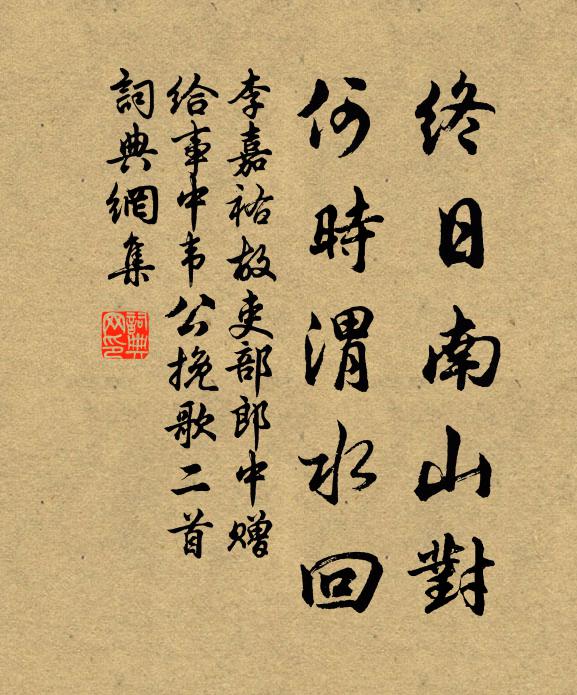 終日南山對
何時渭水回
李嘉祐故吏部郎中赠
給事中韦公挽歌二首
詞典網集
詞典网印